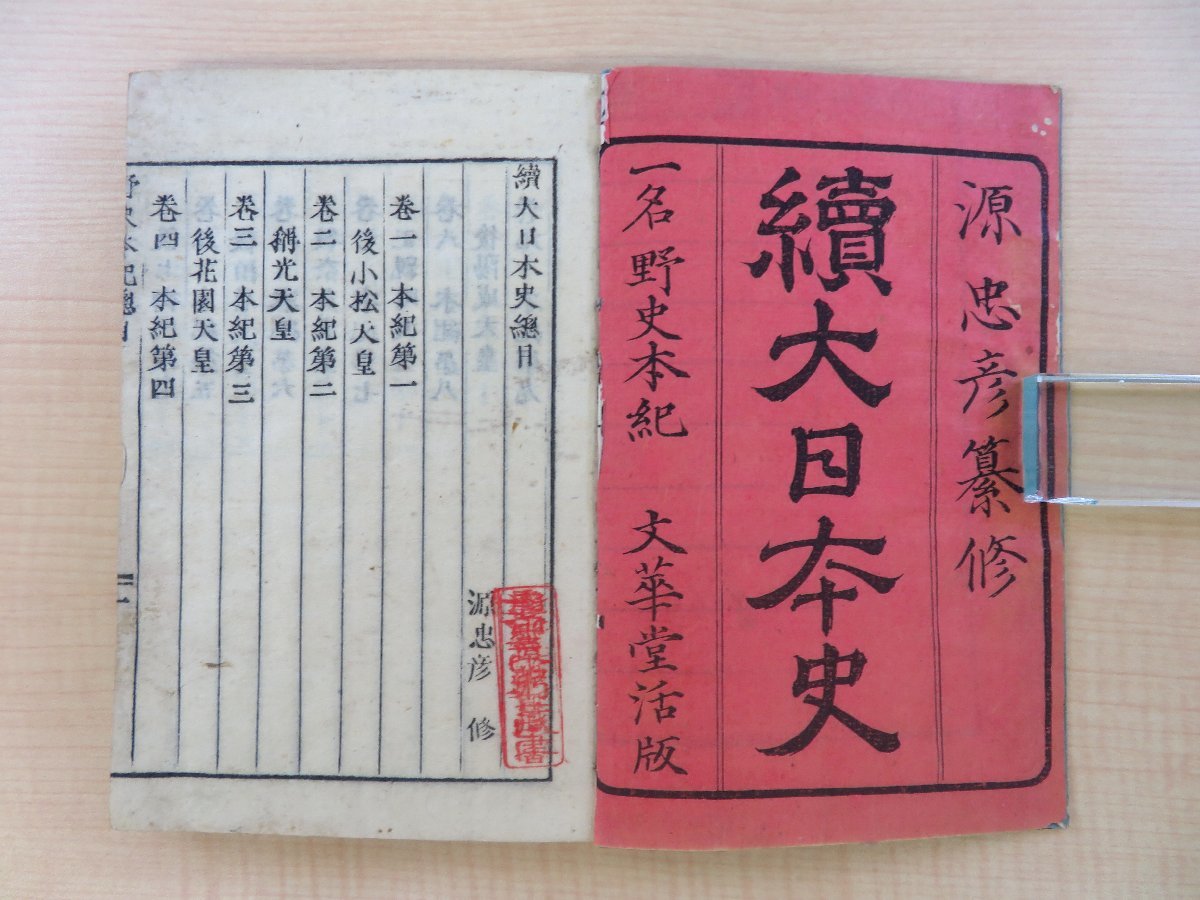 源忠彦纂修
續大日本史
一名野史本紀 文華堂活版
續大日本史總目
源忠彦 修
卷一 本紀第一
後小松天皇
卷二 本紀第二
稱光天皇
卷三 本紀第三
後花園天皇
卷四 本紀第四
野史本紀總目